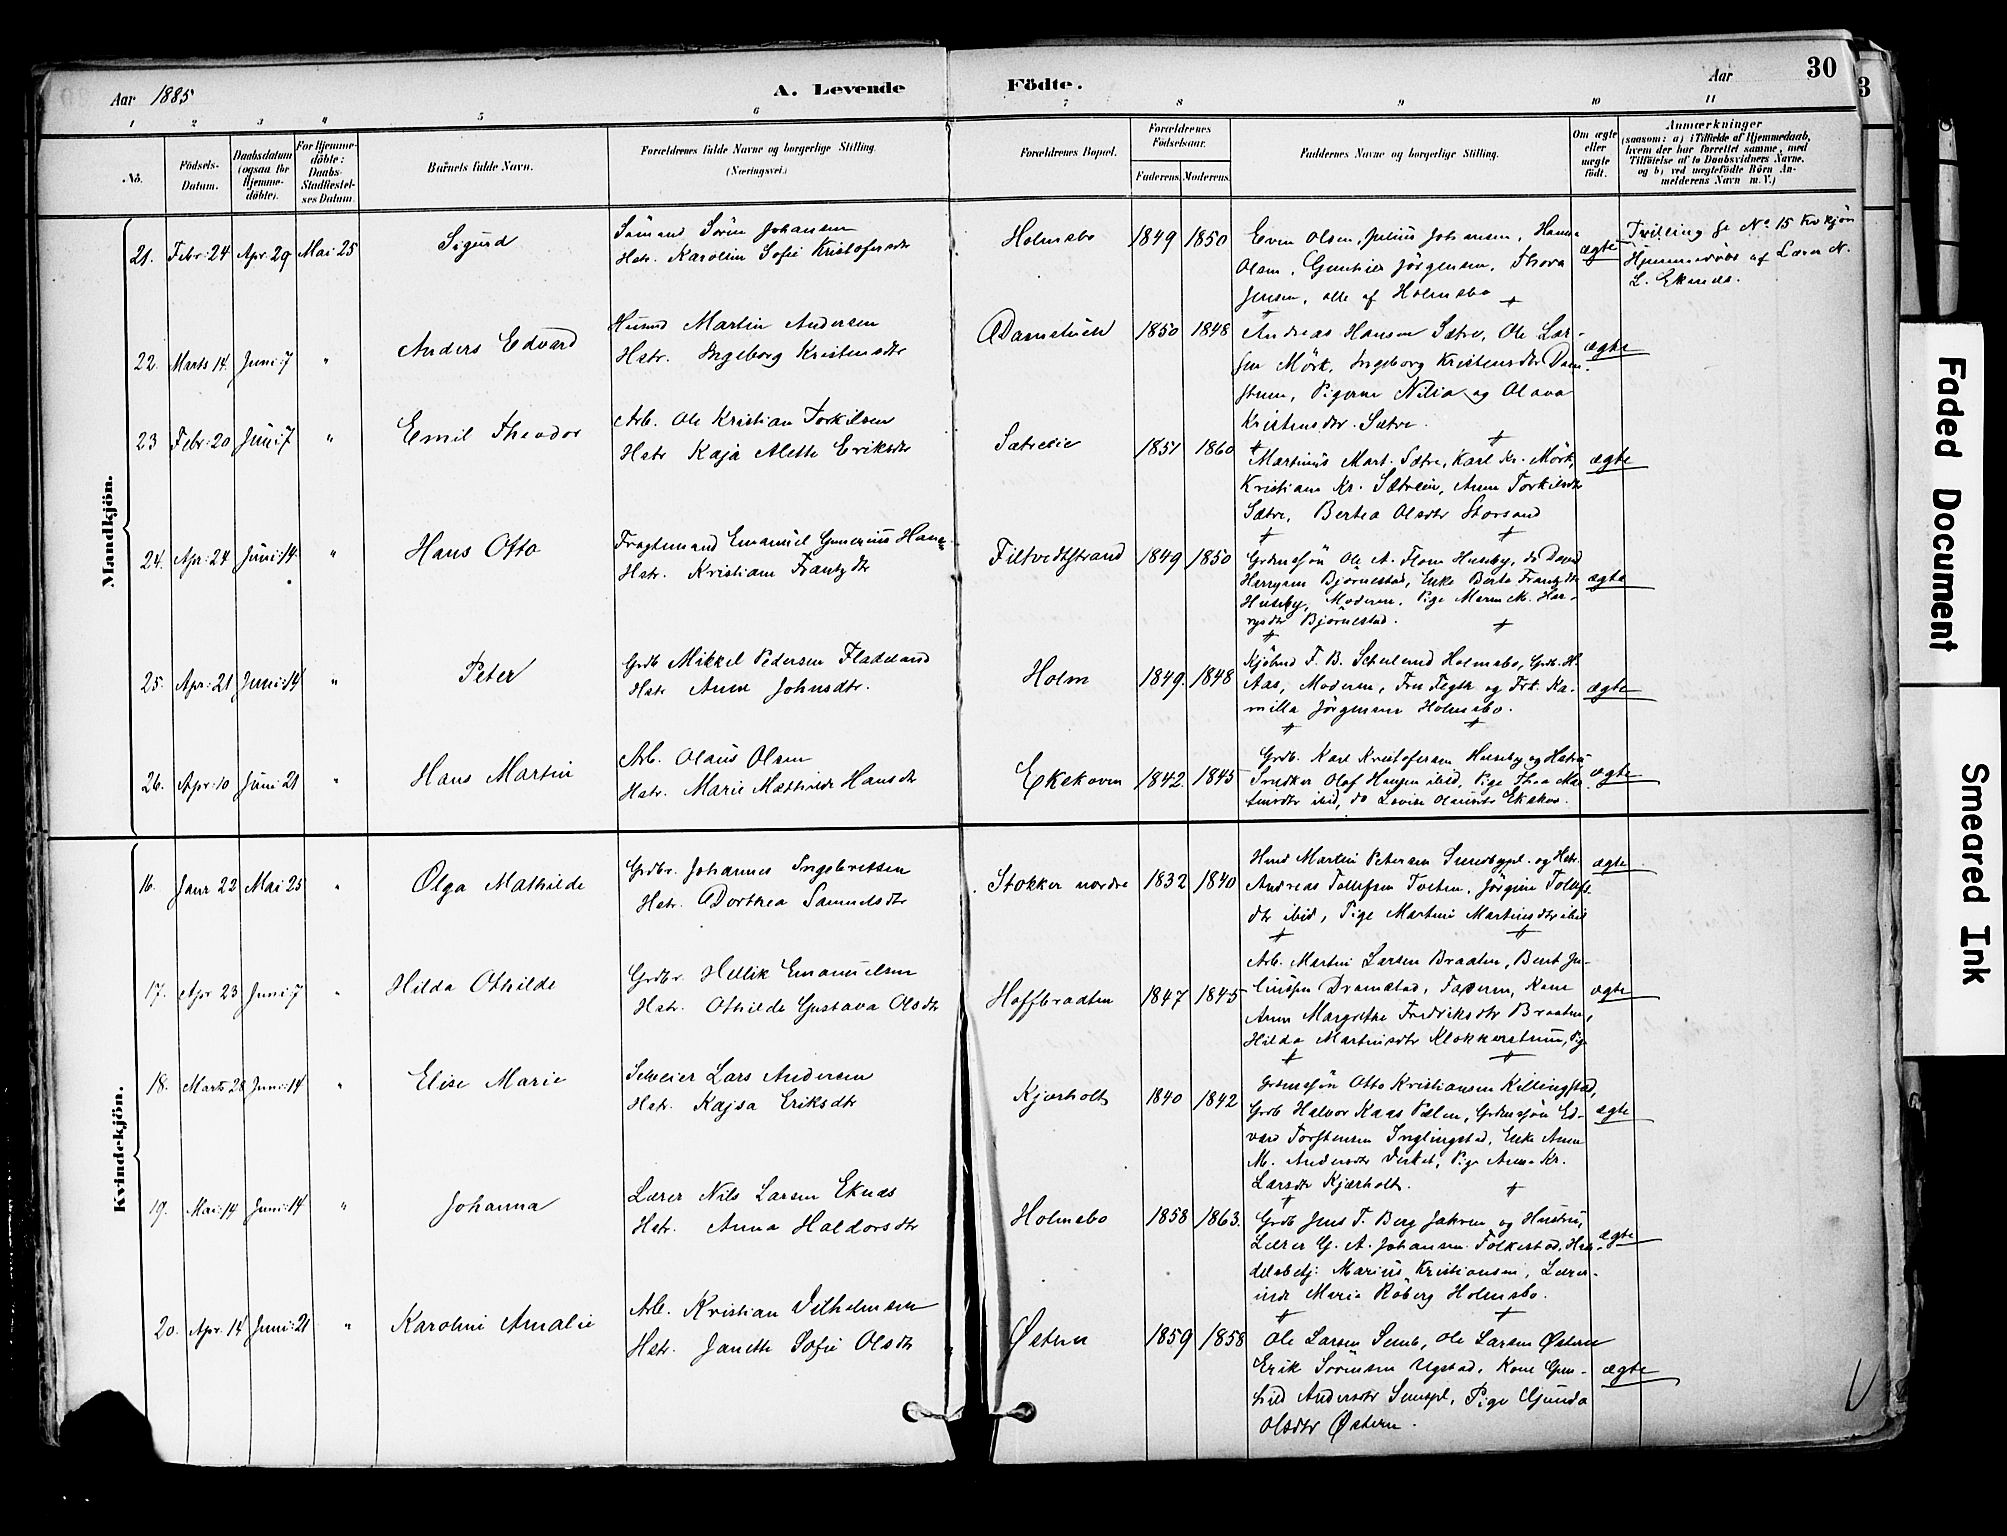 30
Aar 1885
A. Levende Födte.
Aar
1 2 3 4 5 6 7 8 9 10 11
No.
Födsels-Datum.
Daabsdatum (ogsaa for Hjemme-döbte).
For Hjemme-döbte: Daabs-Stadfæstel-ses Datum.
Barnets fulde Navn.
Forældrenes fulde Navne og borgerlige Stilling.
(Næringsvei.)
Forældrenes Bopæl.
Forældrenes Födselsaar.
Faderens. Moderens.
Faddernes Navne og borgerlige Stilling.
Om ægte eller uægte födt.
Anmærkninger
(saasom: a) i Tilfælde af Hjemmedaab,
hvem der har forrettet samme, med
Tilföielse af to Daabsvidners Navne,
og b) ved uægtefödte Börn An-
melderens Navn m. V.)
Mandkjön.
21. Febr: 24 Apr. 29 Mai 25 Sigurd
Sömand Sörin Johansen
Hstr. Karoline Sofie Kristofersdtr
Holmsbo 1849 1850
Even Olsen, Julius Johansen, Hanna
Olsen, Gunhier Jörgensen, Thora
Jensen, alle af Holmsbo
ægte
Tvilling se No 15 Kvkjön
Hjemmedöbt af Lærer N.
L. Eknæs.
22. Marts 14. Juni: 7 " Anders Edvard
Husmd Martin Andersen
Hstr. Ingeborg Kristensdtr
Damstuen 1850 1848
Andreas Hansen Sætre, Ole Lar-
sen Mörk, Ingeborg Kristensdtr Dam-
stuen, Pigerne Nilia og Olava
Kristensdtr Sætre.
ægte
23 Febr: 20 Juni 7 " Emil Theodor
Arb. Ole Kristian Torkilsen
Hstr Kaja Mette Eriksdtr
Sætreeie 1851 1860
Martinius Mart. Sætre, Karl Kr. Mörk,
Kristiane Kr. Sætreeie, Anne Torkilsdtr
Sætre, Bertea Olsdtr Storsand
ægte
24. Apr: 24 Juni: 14. " Hans Otto
Fragtemand Emanuel Gunerius Hans.
Hstr. Kristiane Frantzdtr
Filtvedtstrand 1849 1850
Grdmsön Ole A. Huseby, do
Bjørnestad, Enke Berte Frantzdtr
Huseby, Moderen, Pige Maren M. Har-
rysdtr Björnestad.
ægte
25. Apr: 21 Juni: 14 " Peter
Grdb Mikkel Pedersen Fladeland
Hstr Anne Johnsdtr.
Holm 1849. 1848
Kjöbmd F. B. Holmsbo, Grdb. H.
Aas, Moderen, Fru og Frk. Ka-
milla Jörgensen Holmsbo.
ægte
26. Apr: 10 Juni 21 " Hans Martin
Arb. Olaus Olsen
Hstr. Marie Mathilde Hansdtr
Ekekoven 1842. 1845
Grdb. Karl Kristofersen Huseby og Hstru
Snedker Olaf Hansen ibid, Pige Thea Mar-
ibid, do Lovise
ægte
Kvindekjön.
16. Janr 22 Mai 25 " Olga Mathilde
Grdbr. Johannes Ingebretsen
Hstr. Dorthea Samuelsdtr
Stokker nordre 1832 1840
Hmd Martin Petersen Sundbypl. og Hstr.
Andreas Tollefsen Tveten, Jörgine Tollefs-
dtr ibid, Pige Martine Martinsdtr ibid
ægte
17. Apr 23 Juni: 7 " Hilda Othilde
Grdbr. Hellik Emanuelsen
Hstr. Othilde Gustava Olsdtr
Hoffbraaten 1847 1845
Arb. Martin Larsen Braaten, Bent Ju-
liussen Dramstad, Faderen, Kone
Anne Margrethe Fredriksdtr Braaten,
Hilda Martinsdtr Klokkerstuen, Pige
ægte
18. Marts 28 Juni: 14 " Elise Marie
Lars Andersen
Hstr. Kajsa Eriksdtr
Kjærholt 1840 1842
Grdmsön Otto Kristiansen Killingstad,
Grdb Halvor Kaas Pælen, Grdmsön Ed-
vard Torstensen Inglingstad, Enke Anne
M. Andersdtr Virket, Pige Anne Kr.
Larsdtr Kjærholt.
ægte
19. Mai: 14 Juni: 14 " Johanna
Lærer Nils Larsen Eknæs
Hstr. Anna Haldorsdtr
Holmsbo 1858 1863.
Grdb Jens T. Berg Jahren og Hustru,
Lærer G. A. Johansen Folkestad, Han-
delsbetj: Marius Kristiansen, Lærer-
inde Maria Röberg Holmsbo.
ægte
20. Apr. 14 Juni: 21 " Karoline Amalie
Arb. Kristian Vilhelmsen
Hstr. Janette Sofie Olsdtr
Østern 1859 1858
Ole Larsen Semb, Ole Larsen Østern
Erik Sörensen Ugstad, Kone Gun-
hild Andersdtr, Pige Gunda
Olsdtr Østern.
ægte
3
Faded Document
Smeared Ink